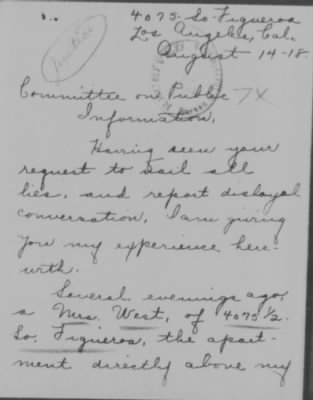 4075 So Figueroa
Los Angeles, Cal.
August 14-18.
Justice
Committee on Public 74
Information,
Having seen your
request to nail all
lies, and report disloyal
conversation, I am giving
you my experience here-
with.
Several evenings ago,
a Mrs. West, of 4075 1/2
So. Figueroa, the apart-
ment directly above my